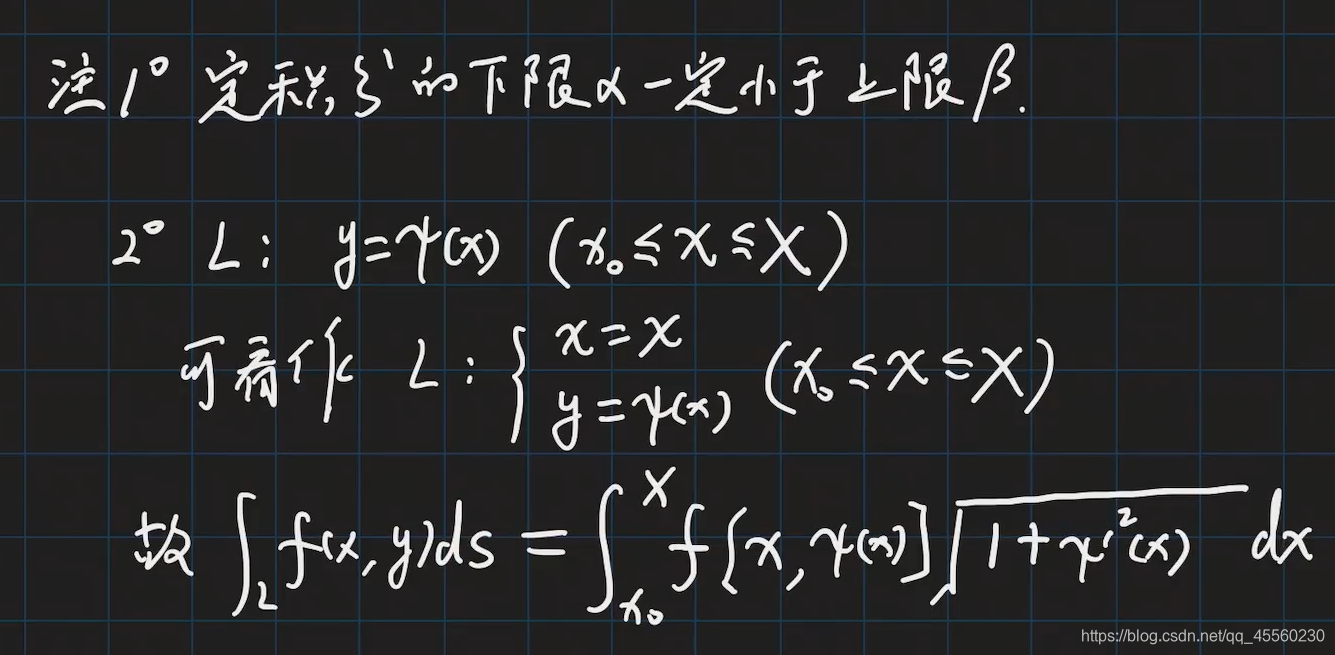 注1° 定积分的下限α一定小于上限β.
2° L: y=ψ(x) (x₀≤x≤X)
可看作 L: { x=x
y=ψ(x) (x₀≤x≤X)
故 ∫_L f(x,y)ds = ∫_{x₀}^{X} f[x,ψ(x)]√(1+ψ'²(x)) dx
https://blog.csdn.net/qq_45560230